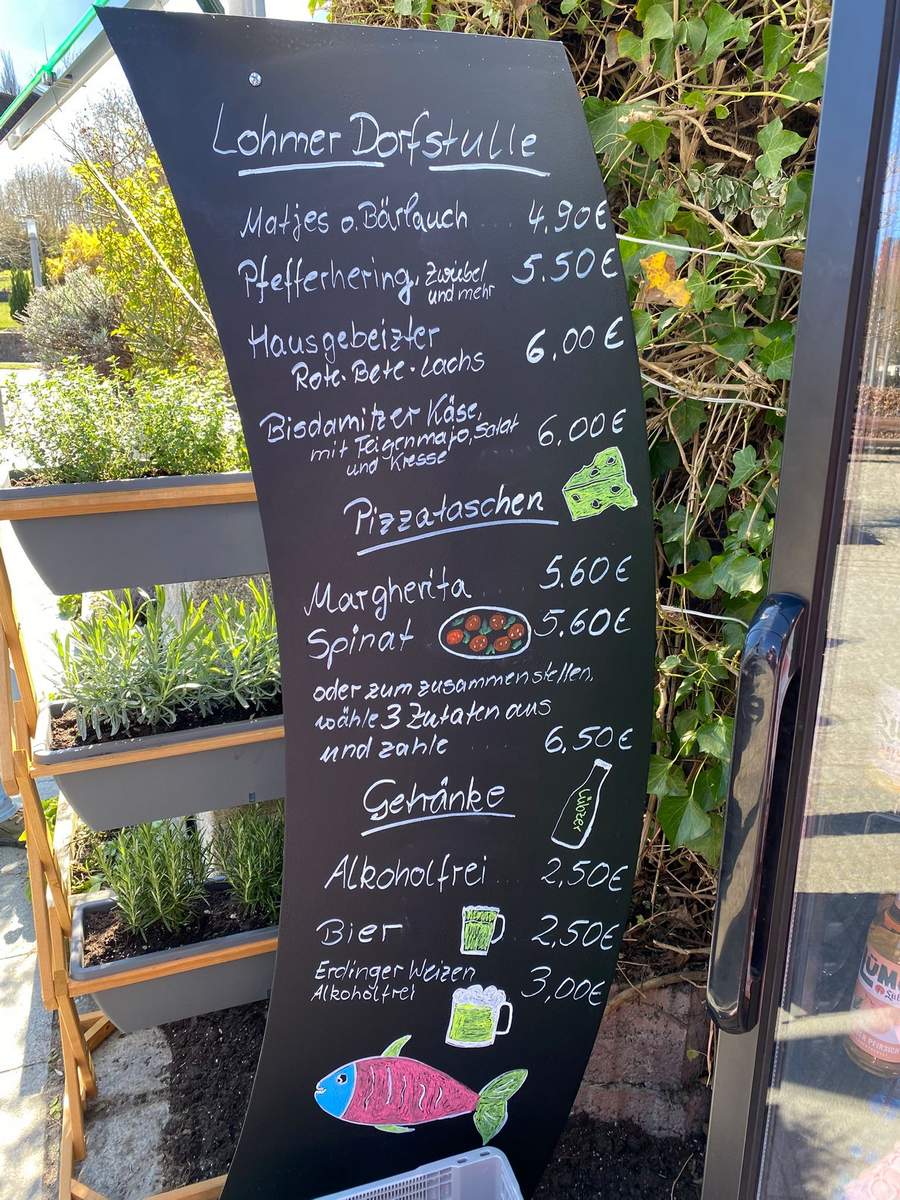 Lohmer Dorfstulle
Matjes o. Bärlauch .... 4,90€
Pfefferhering, Zwiebel und mehr 5.50€
Hausgebeizter
Rote-Bete-Lachs 6,00€
Bisdamitzer Käse,
mit Feigenmajo, Salat 6,00€
und Kresse
Pizzataschen
Margherita .... 5.60€
Spinat 5.60€
oder zum zusammenstellen,
wähle 3 Zutaten aus
und zahle .... 6,50€
Getränke
Lübzer
Alkoholfrei ... 2,50€
Bier 2,50€
Erdinger Weizen
Alkoholfrei 3,00€